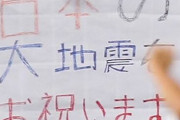 日本の
大地震を
お祝います